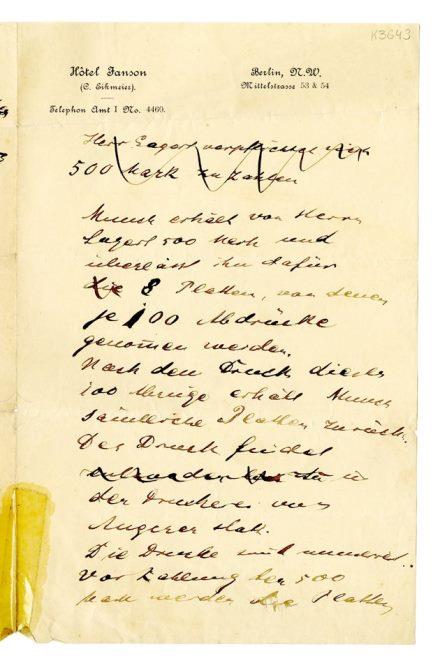 K3643
Hôtel Janson
(C. Eikmeier).
Telephon Amt I No. 4460.
Berlin, N.W.
Mittelstrasse 53 & 54
Herr Sagert verpflichtet sich
500 Mark zu zahlen
Munch erhält von Herrn
Sagert 500 Mark und
überlässt ihm dafür
die 8 Platten, von denen
je 100 Abdrücke
genomen werden.
Nach dem Druck dieser
100 Abzüge erhält Munch
sämtliche Platten zurück.
Der Druck findet
in
der Druckerei von
Angerer statt.
Die Drucke sind
Vor Zahlung der 500
Mark werden die Platten